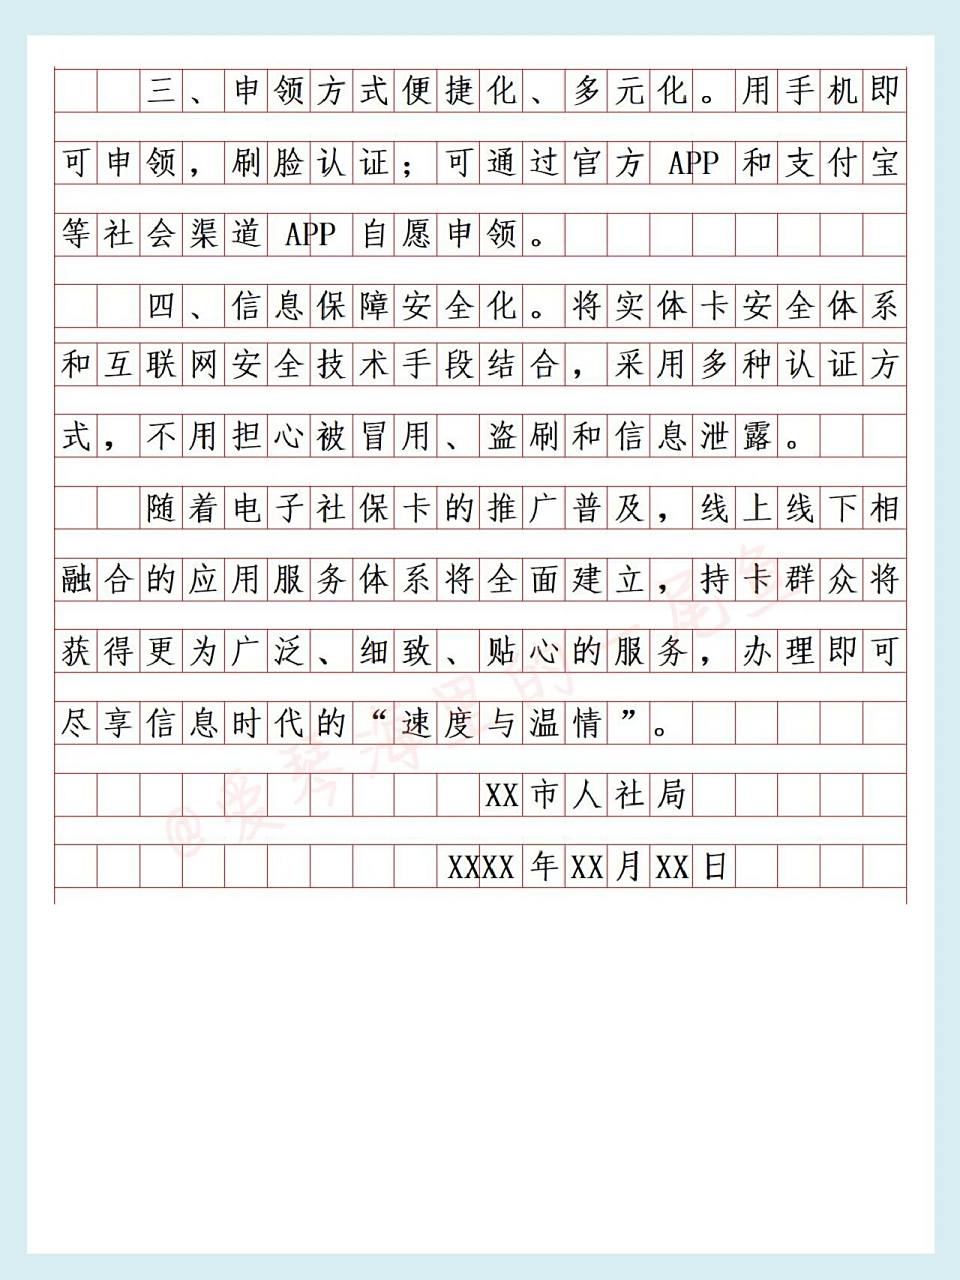 三、申领方式便捷化、多元化。用手机即
可申领，刷脸认证；可通过官方 APP 和支付宝
等社会渠道 APP 自愿申领。
四、信息保障安全化。将实体卡安全体系
和互联网安全技术手段结合，采用多种认证方
式，不用担心被冒用、盗刷和信息泄露。
随着电子社保卡的推广普及，线上线下相
融合的应用服务体系将全面建立，持卡群众将
获得更为广泛、细致、贴心的服务，办理即可
尽享信息时代的“速度与温情”。
XX市人社局
XXXX年XX月XX日
@爱琴海里的一尾鱼